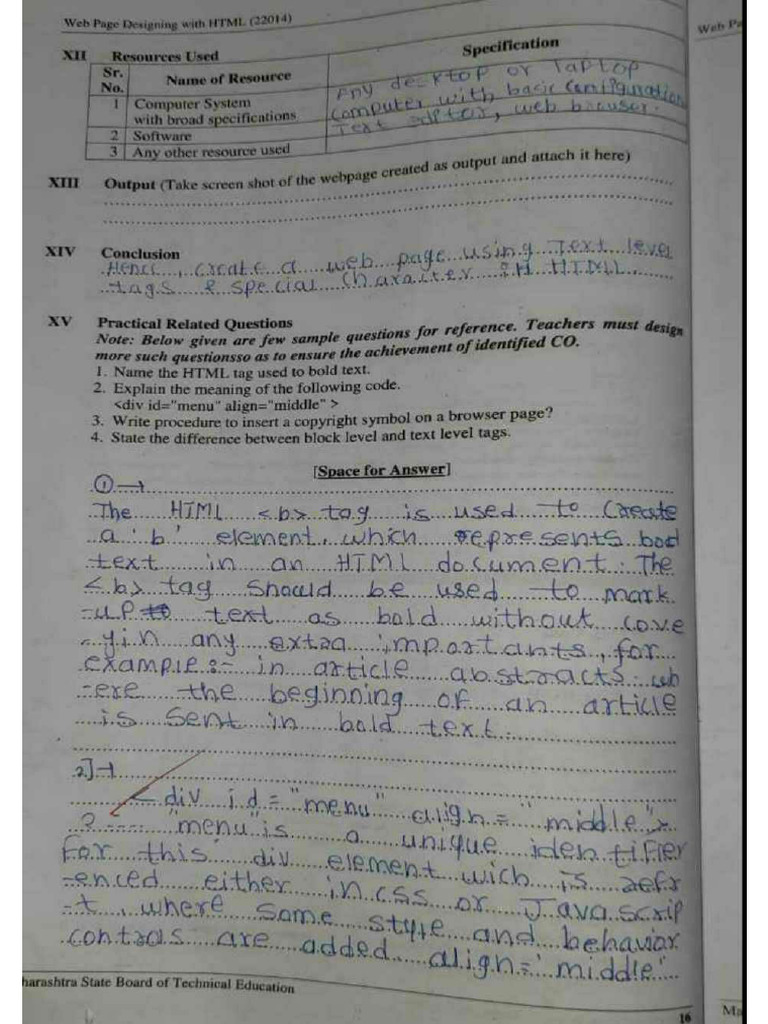 Web Page Designing with HTML (22014)
Web Pa
XII Resources Used
Sr. No. Name of Resource Specification
1 Computer System with broad specifications
Any desktop or Taptop
Computer with basic Configuration
Text , web browser.
2 Software
3 Any other resource used
XIII Output (Take screen shot of the webpage created as output and attach it here)
XIV Conclusion
Hence, create a web page using Text level
tags & special Character in HTML
XV Practical Related Questions
Note: Below given are few sample questions for reference. Teachers must design
more such questionsso as to ensure the achievement of identified CO.
1. Name the HTML tag used to bold text.
2. Explain the meaning of the following code.
<div id="menu" align="middle" >
3. Write procedure to insert a copyright symbol on a browser page?
4. State the difference between block level and text level tags.
[Space for Answer]
①→
The HTML <b> tag is used to Create
a 'b' element, which represents bod
text in an HTML document. The
<b> tag should be used to mark
-up text as bold without cove
-yin any extra importants, for
example:- in article abstracts wh
-ere the beginning of an article
is sent in bold text.
2]→
< div id = "menu" align = "middle">
? ---- "menu" is a unique identifier
For this div element wich is refr
-enced either in css or Java scrip
-t, where some style and behavior
controls are added align='middle'
harashtra State Board of Technical Education
16
Ma